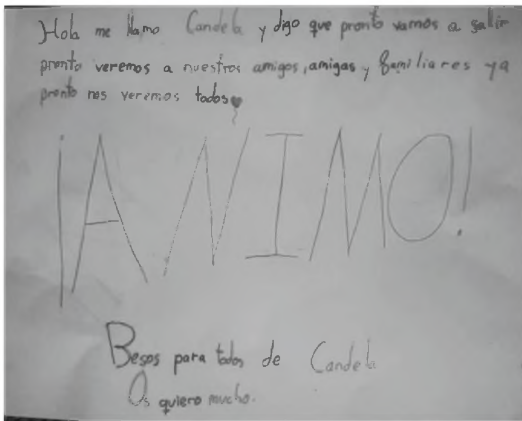 Hola me llamo Candela y digo que pronto vamos a salir
pronto veremos a nuestros amigos, amigas y familiares ya
pronto nos veremos todos
¡ANIMO!
Besos para todos de Candela
Os quiero mucho.